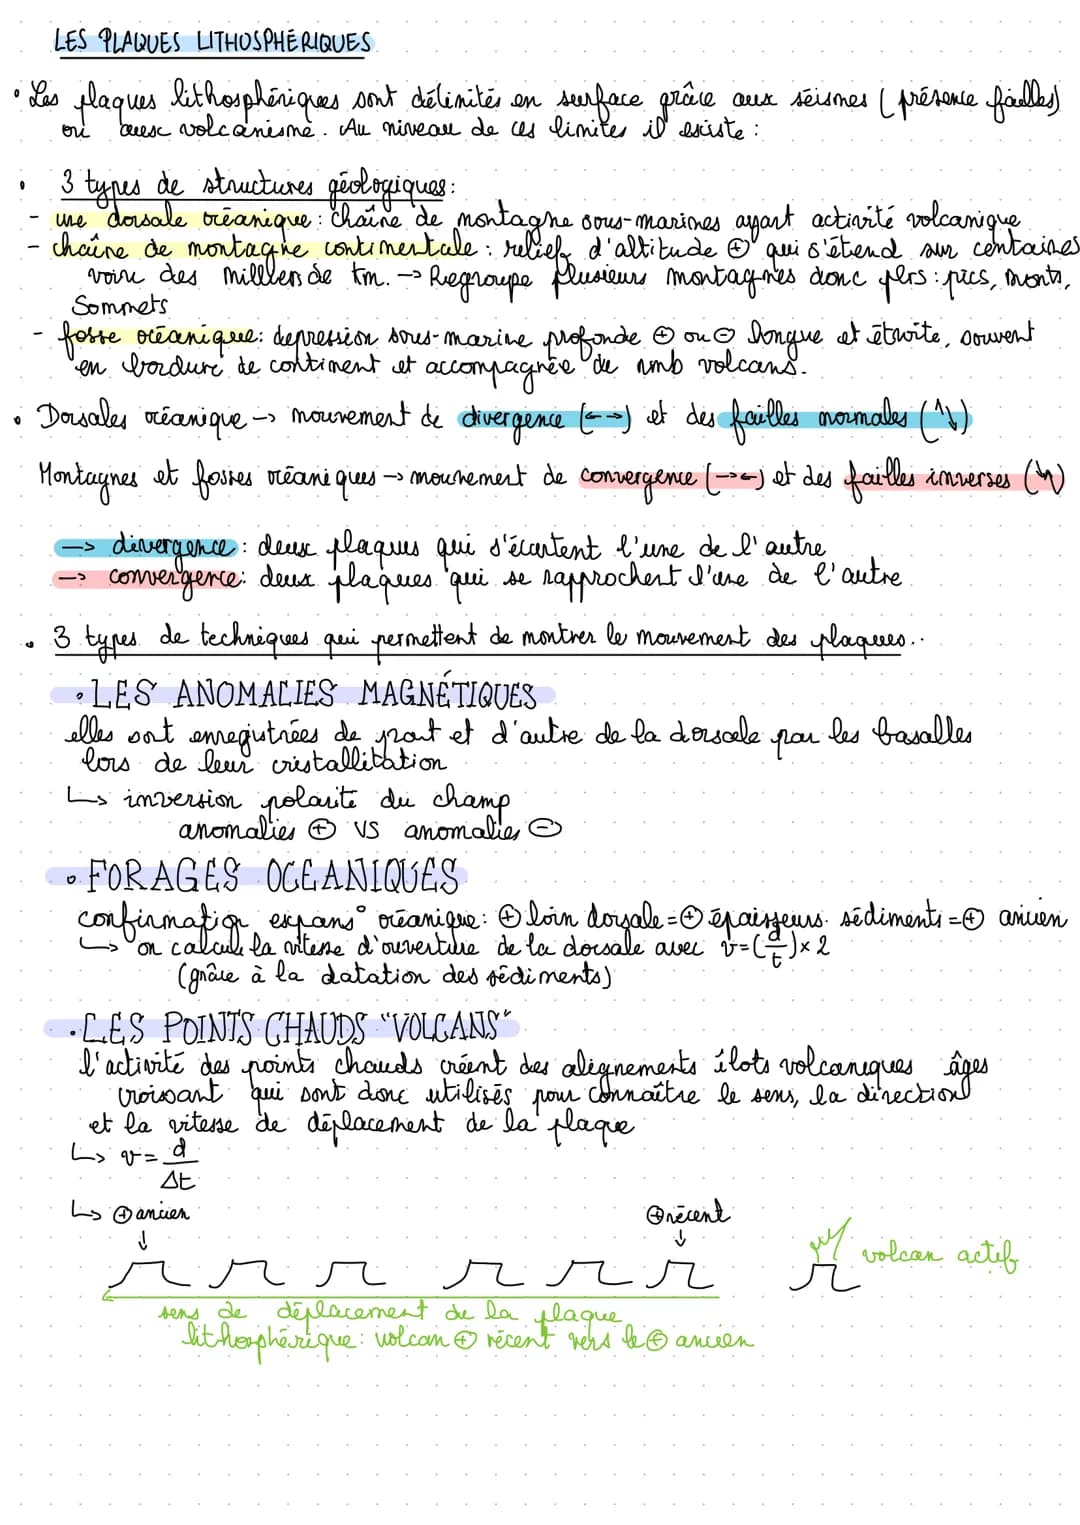 LES PLAQUES LITHOSPHÉRIQUES
• Les plaques lithosphériques sont délimités en surface grâce aux séismes (présence failles)
ou aussi volcanisme. Au niveau de ces limites il existe :
• 3 types de structures géologiques :
- une dorsale océanique : chaîne de montagne sous-marines ayant activité volcanique
- chaîne de montagne continentale : relief d'altitude ⊕ qui s'étend sur centaines
voire des milliers de km. -> Regroupe plusieurs montagnes donc plrs : pics, monts,
Sommets
- fosse océanique : depression sous-marine profonde ⊕ ou ⊖ longue et étroite, souvent
en bordure de continent et accompagnée de nmb volcans.
• Dorsales océanique -> mouvement de divergence (<-->) et des failles normales (↑↓)
Montagnes et fosses océaniques -> mouvement de convergence (-><-) et des failles inverses (↓↑)
-> divergence : deux plaques qui s'écartent l'une de l'autre
-> convergence : deux plaques qui se rapprochent l'une de l'autre
• 3 types de techniques qui permettent de montrer le mouvement des plaques :
• LES ANOMALIES MAGNÉTIQUES
elles sont enregistrées de part et d'autre de la dorsale par les basaltes
lors de leur cristallisation
↳ inversion polarité du champ
anomalies ⊕ VS anomalies ⊖
• FORAGES OCEANIQUES
confirmation expans° océanique : ⊕ loin dorsale = ⊕ épaisseurs sédiments = ⊕ ancien
↳ on calcule la vitesse d'ouverture de la dorsale avec v=(d/t)×2
(grâce à la datation des sédiments)
• LES POINTS CHAUDS "VOLCANS"
l'activité des points chauds créent des alignements îlots volcaniques âges
croissant qui sont donc utilisés pour connaître le sens, la direction
et la vitesse de déplacement de la plaque
↳ v = d/Δt
↳ ⊕ ancien ⊕ récent
volcan actif
sens de déplacement de la plaque
lithosphérique : volcan ⊕ récent vers le ⊕ ancien